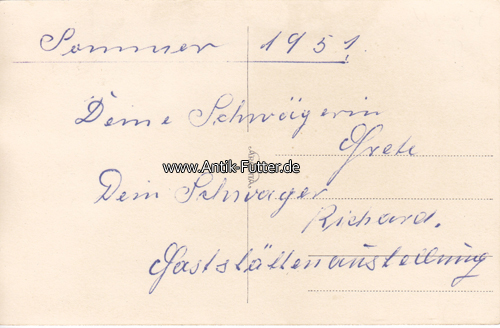 Sommer 1951.
Deine Schwägerin
Grete
www.Antik-Futter.de
Dein Schwager
Richard.
Gaststättenausteilung